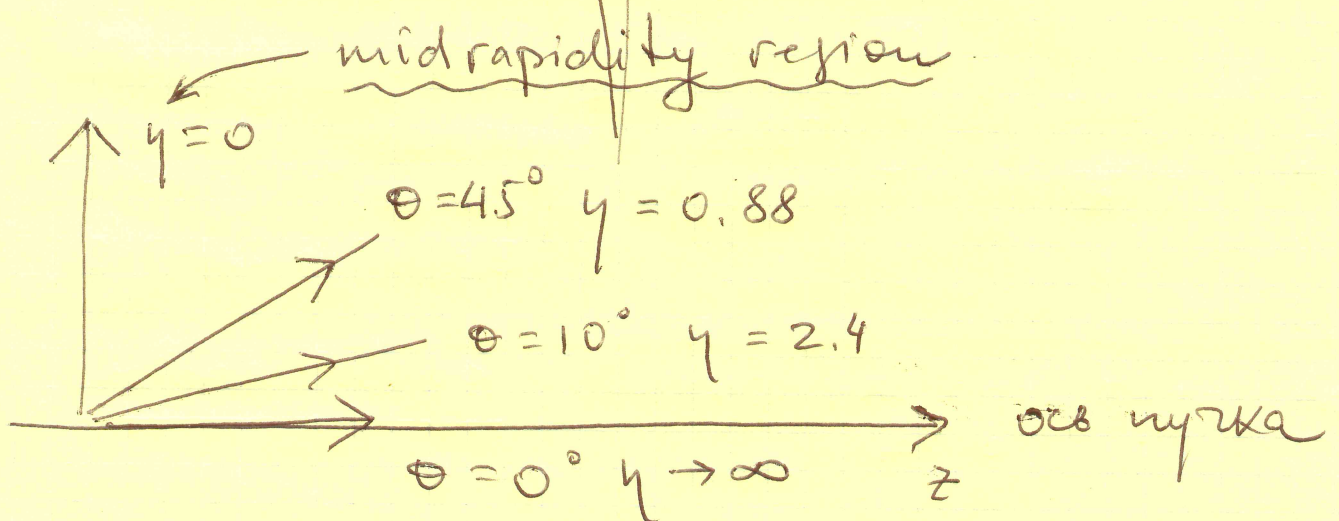 midrapidity region
η = 0
θ = 45° η = 0.88
θ = 10° η = 2.4
ось пучка
θ = 0° η → ∞
z